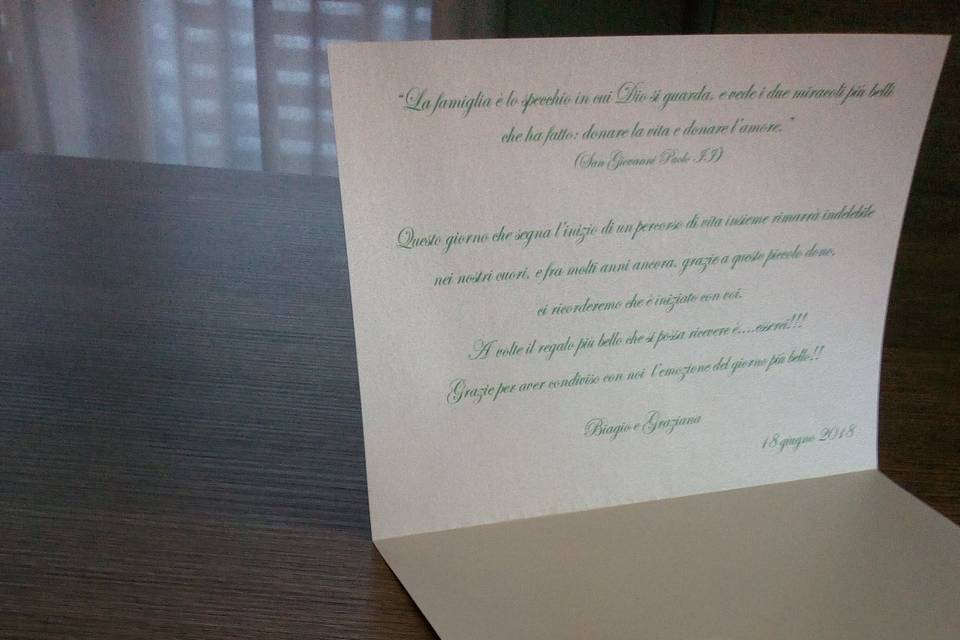 “La famiglia è lo specchio in cui Dio si guarda, e vede i due miracoli più belli
che ha fatto: donare la vita e donare l'amore.”
(San Giovanni Paolo II)
Questo giorno che segna l'inizio di un percorso di vita insieme rimarrà indelebile
nei nostri cuori, e fra molti anni ancora, grazie a questo piccolo dono,
ci ricorderemo che è iniziato con voi.
A volte il regalo più bello che si possa ricevere è....esserci!!!
Grazie per aver condiviso con noi l'emozione del giorno più bello!!
Biagio e Graziana
18 giugno 2018